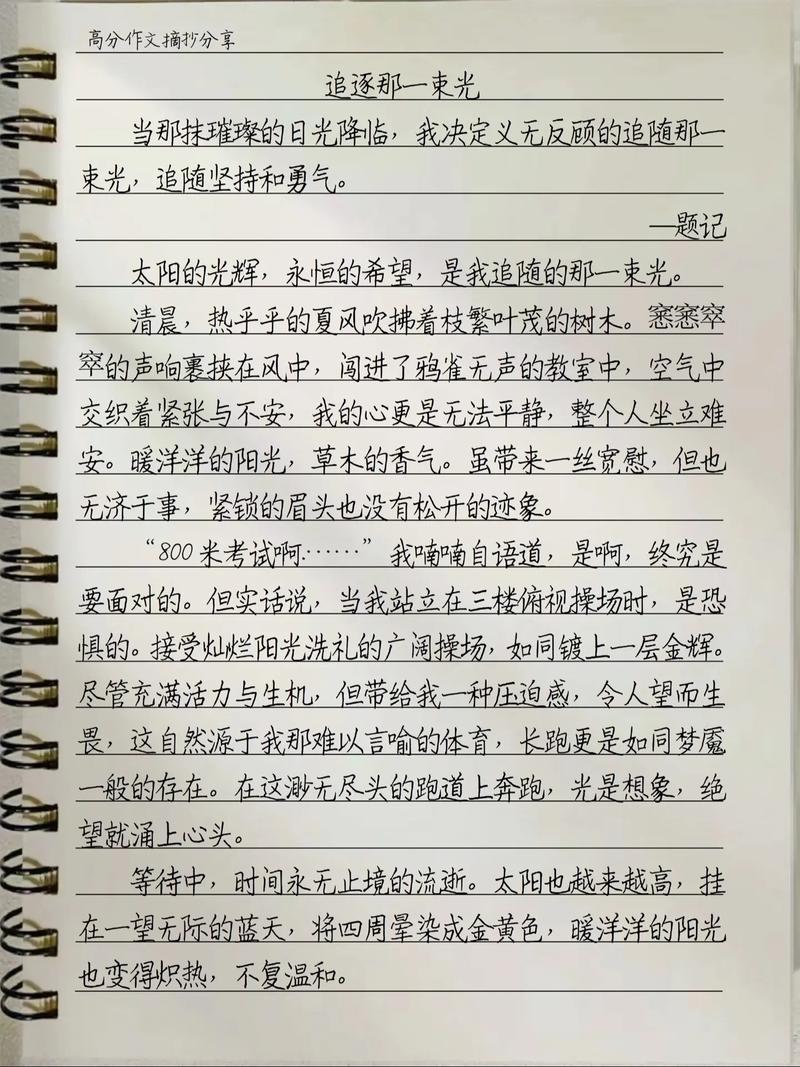 高分作文摘抄分享
追逐那一束光
当那抹璀璨的日光降临，我决定义无反顾的追随那一
束光，追随坚持和勇气。
—题记
太阳的光辉，永恒的希望，是我追随的那一束光。
清晨，热乎乎的夏风吹拂着枝繁叶茂的树木。窸窸窣
窣的声响裹挟在风中，闯进了鸦雀无声的教室中，空气中
交织着紧张与不安，我的心更是无法平静，整个人坐立难
安。暖洋洋的阳光，草木的香气。虽带来一丝宽慰，但也
无济于事，紧锁的眉头也没有松开的迹象。
“800米考试啊……”我喃喃自语道，是啊，终究是
要面对的。但实话说，当我站立在三楼俯视操场时，是恐
惧的。接受灿烂阳光洗礼的广阔操场，如同镀上一层金辉。
尽管充满活力与生机，但带给我一种压迫感，令人望而生
畏，这自然源于我那难以言喻的体育，长跑更是如同梦魇
一般的存在。在这渺无尽头的跑道上奔跑，光是想象，绝
望就涌上心头。
等待中，时间永无止境的流逝。太阳也越来越高，挂
在一望无际的蓝天，将四周晕染成金黄色，暖洋洋的阳光
也变得炽热，不复温和。